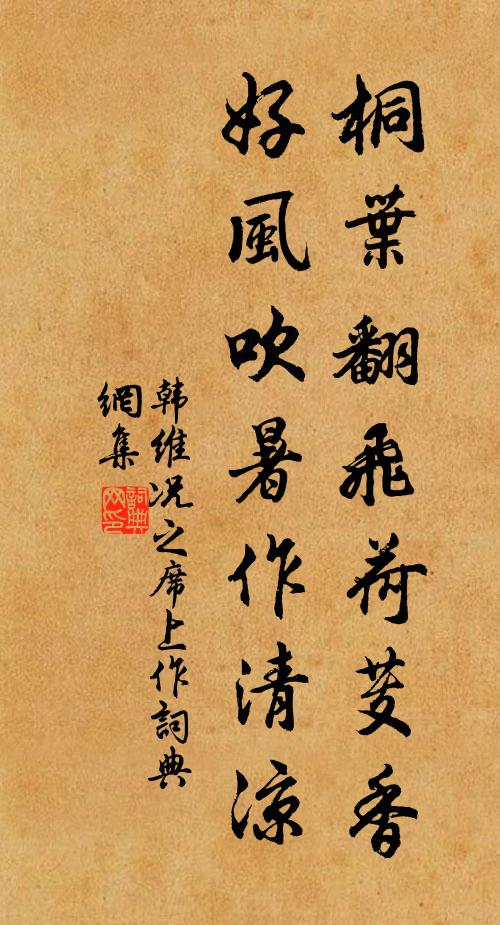 桐葉翻飛荷芰香
好風吹暑作清涼
韩維况之席上作詞典
網集
詞典
网印